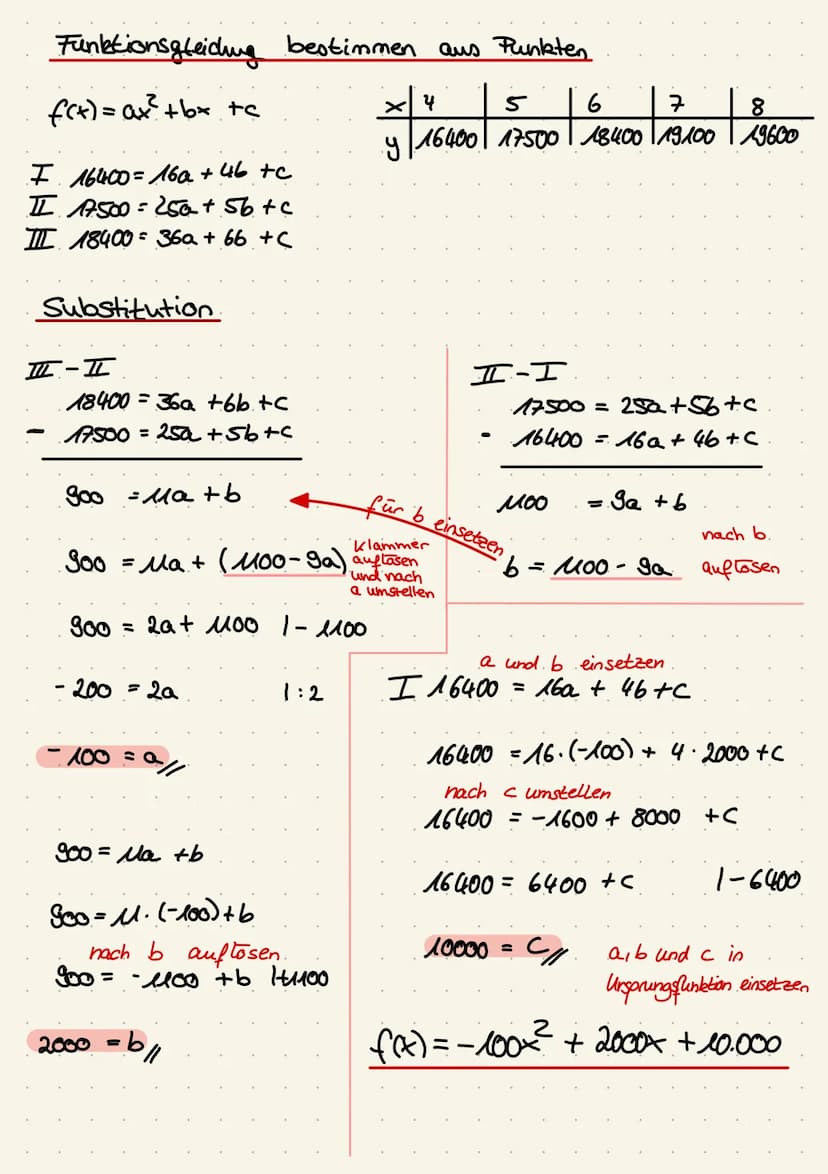 Funktionsgleichung bestimmen aus Punkten
f(x) = ax² + bx + c
x | 4 | 5 | 6 | 7 | 8
y | 16400 | 17500 | 18400 | 19100 | 19600
I 16400 = 16a + 4b + c
II 17500 = 25a + 5b + c
III 18400 = 36a + 6b + c
Substitution
III - II
18400 = 36a + 6b + c
- 17500 = 25a + 5b + c
900 = 11a + b
900 = 11a + (1100 - 9a)
Klammer
auflösen
und nach
a umstellen
900 = 2a + 1100 | - 1100
- 200 = 2a | : 2
- 100 = a
900 = 11a + b
900 = 11 · (-100) + b
nach b auflösen
900 = -1100 + b | +1100
2000 = b
II - I
17500 = 25a + 5b + c
- 16400 = 16a + 4b + c
1100 = 9a + b
für b einsetzen
nach b
b = 1100 - 9a auflösen
a und b einsetzen
I 16400 = 16a + 4b + c
16400 = 16 · (-100) + 4 · 2000 + c
nach c umstellen
16400 = -1600 + 8000 + c
16400 = 6400 + c | - 6400
10000 = c
a, b und c in
Ursprungsfunktion einsetzen
f(x) = -100x² + 2000x + 10.000